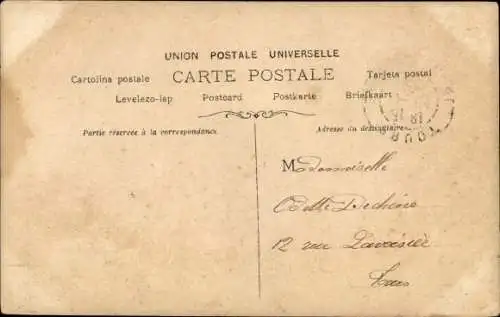 UNION POSTALE UNIVERSELLE
Cartolina postale CARTE POSTALE Tarjeta postal
Levelezo-lap Postcard Postkarte Briefkaart
Partie réservée à la correspondance. Adresse du destinataire
Mademoiselle
Odette
12 rue Lavoisier